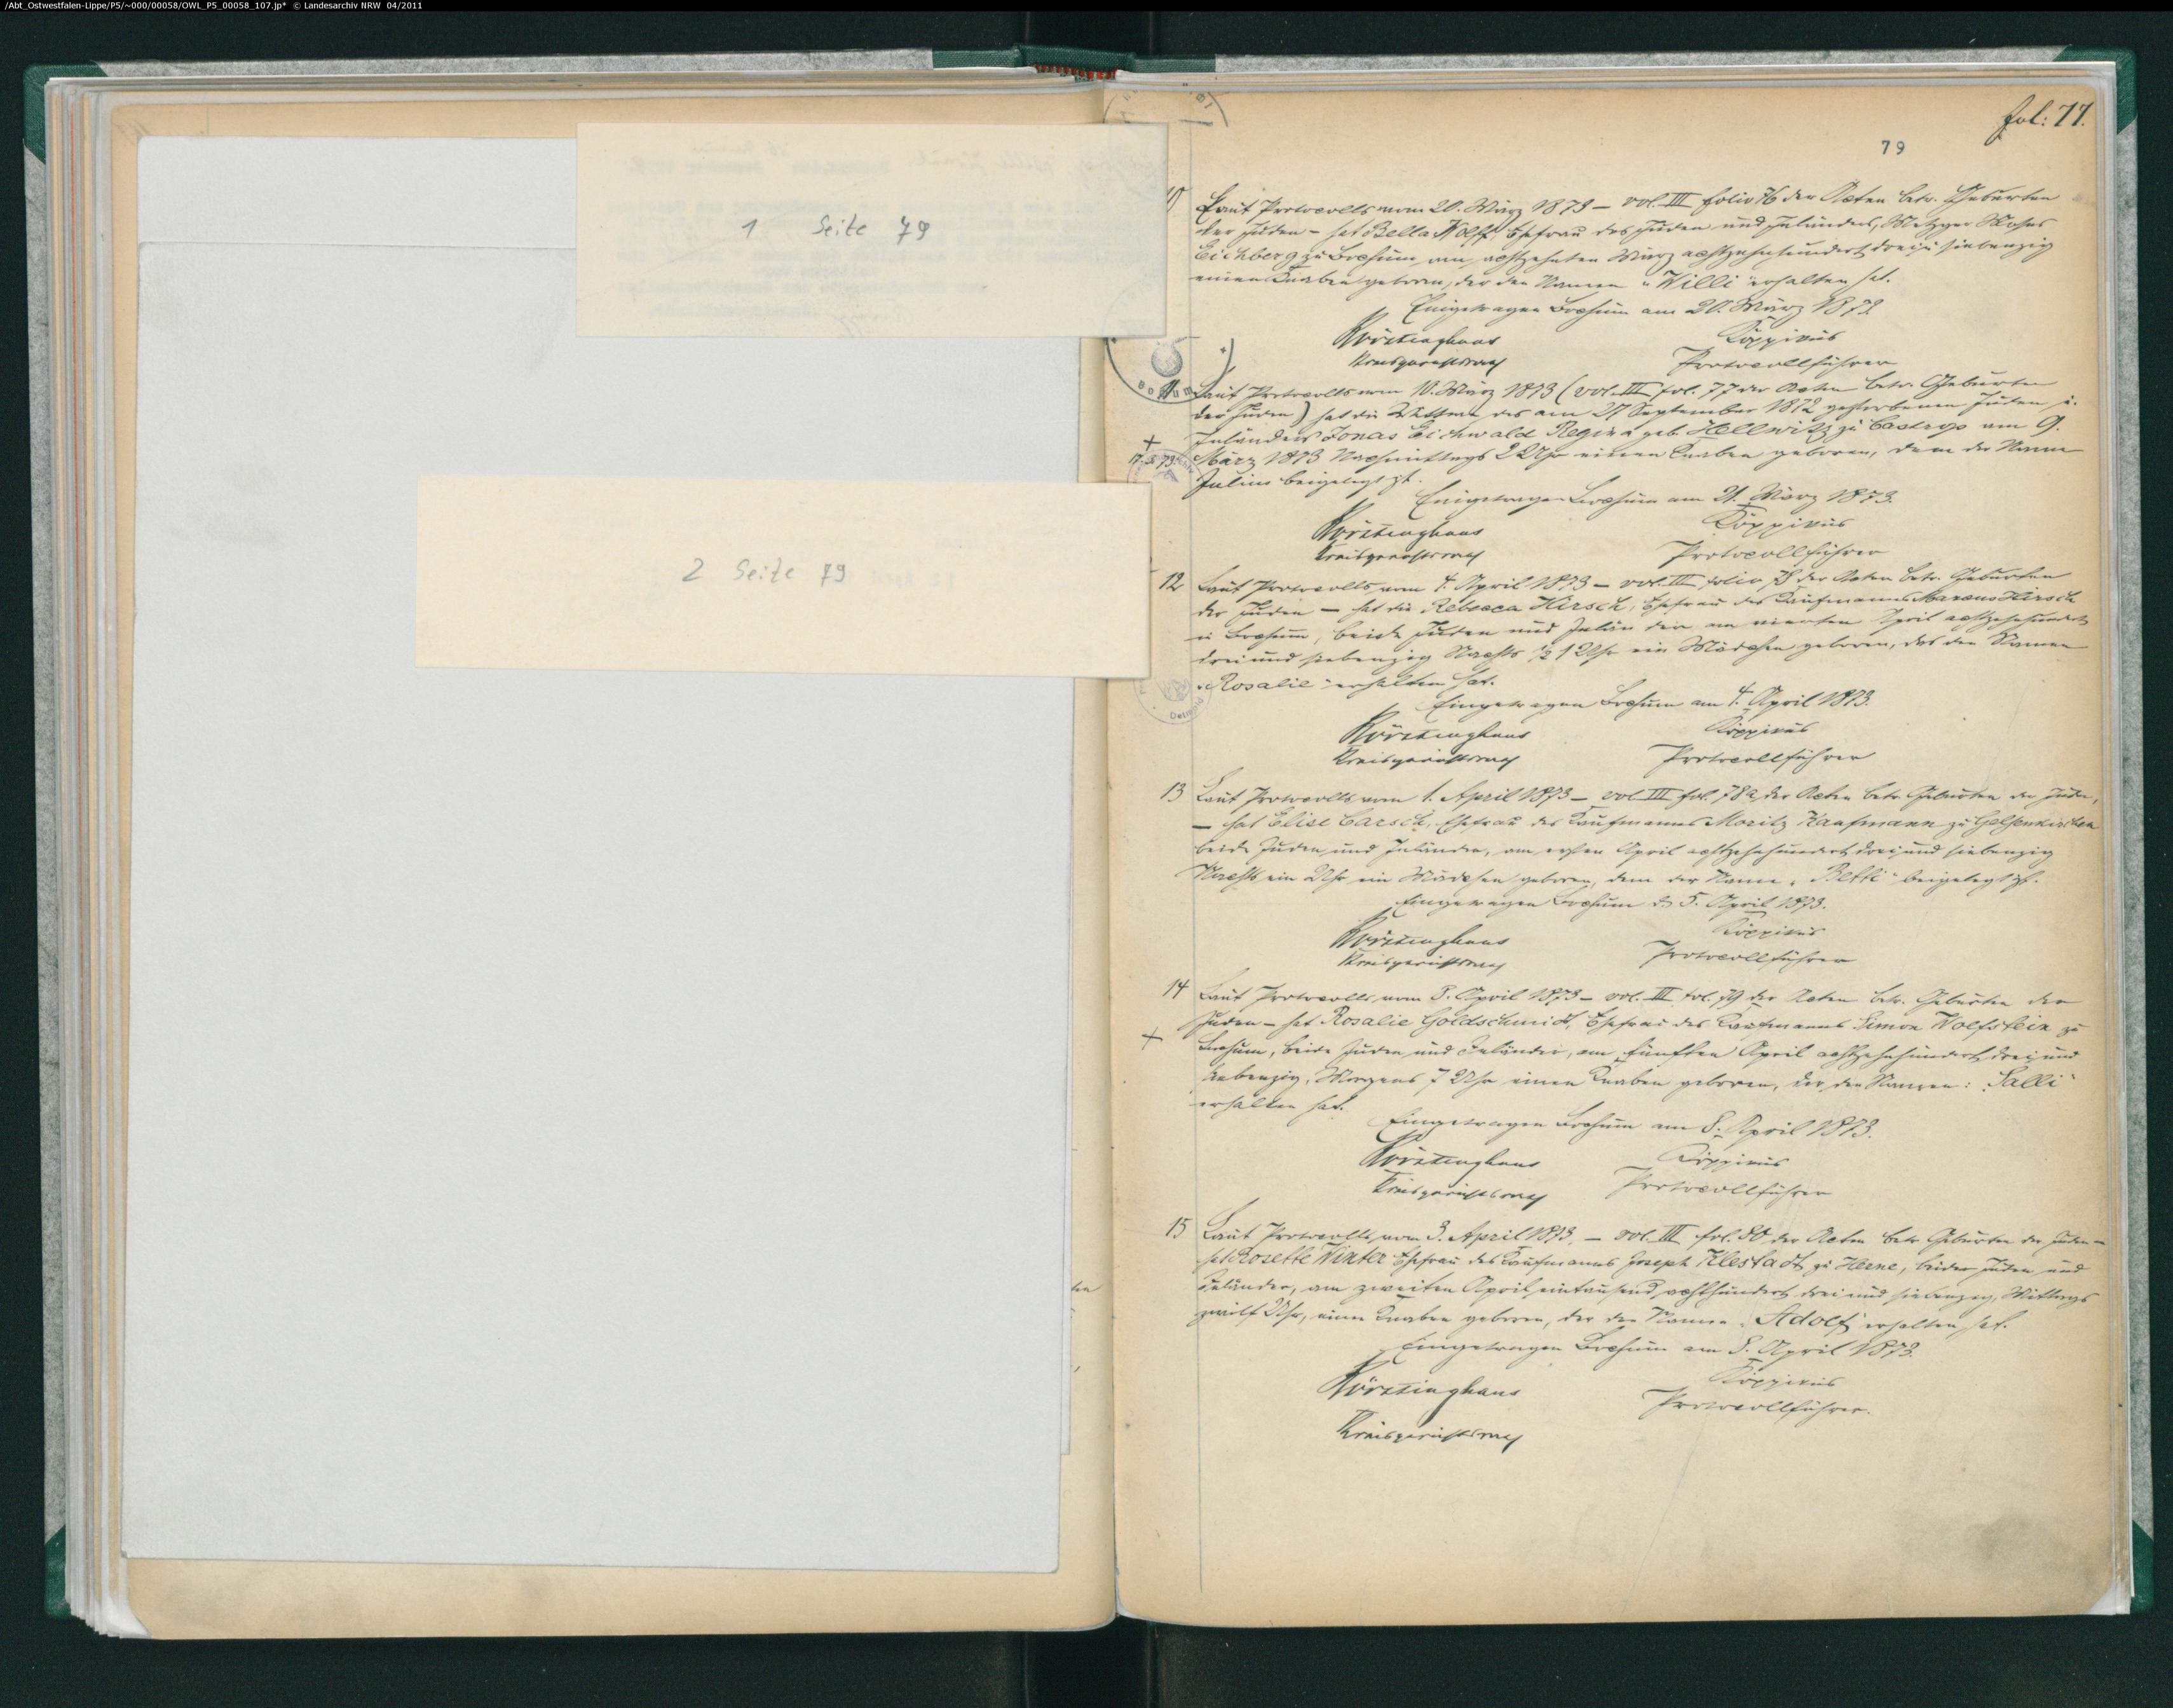 /Abt_Ostwestfalen-Lippe/P5/~000/00058/OWL_P5_00058_107.jp* © Landesarchiv NRW 04/2011
1 Seite 79
2 Seite 79
fol: 77.
79
10 Laut Protocolls vom 20. März 1873 – vol. III folio 76 der Acten betr. Geburten
der Juden – hat Bella Wolff, Ehefrau des Juden und Inländers, Metzger Moses
Eichberg zu Bochum am achtzehnten März achtzehnhundert drei u siebenzig
einen Knaben geboren, der den Namen "Willi" erhalten hat.
Eingetragen Bochum am 20. März 1873
Körstinghaus Köppikus
Kreisgerichtsrath Protocollführer
BOCHUM
11 Laut Protocolls vom 10. März 1873 (vol. III fol. 77 der Acten betr. Geburten
der Juden) hat die Wittwe des am 27 September 1872 gestorbenen Juden u.
Inländers Jonas Eichwald Regina geb. Hellwitz zu Castrop am 9.
+
März 1873 Nachmittags 2 Uhr einen Knaben geboren, dem der Name
Julius beigelegt ist.
Eingetragen Bochum am 21. März 1873.
Körstinghaus Köppikus
Kreisgerichtsrath Protocollführer
12 Laut Protocolls vom 4. April 1873 – vol. III folio 78 der Acten betr. Geburten
der Juden – hat die Rebecca Hirsch, Ehefrau des Kaufmanns Marcus Hirsch
zu Bochum, beide Juden und Inländer am vierten April achtzehnhundert
drei und siebenzig Nachts ½ 1 Uhr ein Mädchen geboren, das den Namen
"Rosalie" erhalten hat.
Detmold
Eingetragen Bochum am 4. April 1873.
Körstinghaus Köppikus
Kreisgerichtsrath Protocollführer
13 Laut Protocolls vom 1. April 1873 – vol. III fol. 78a der Acten betr. Geburten der Juden,
– hat Elise Carsch, Ehefrau des Kaufmanns Moritz Kaufmann zu Gelsenkirchen
beide Juden und Inländer, am ersten April achtzehnhundert drei und siebenzig
Nachts ein Uhr ein Mädchen geboren, dem der Name "Betti" beigelegt ist.
Eingetragen Bochum d. 5. April 1873.
Körstinghaus Köppikus
Kreisgerichtsrath Protocollführer
14 Laut Protocolls vom 8. April 1873 – vol. III fol. 79 der Acten betr. Geburten der
Juden – hat Rosalie Goldschmidt, Ehefrau des Kaufmanns Simon Wolfstein zu
+ Bochum, beide Juden und Inländer, am fünften April achtzehnhundert drei und
siebenzig, Morgens 7 Uhr einen Knaben geboren, der den Namen: "Salli"
erhalten hat.
Eingetragen Bochum am 8. April 1873.
Körstinghaus Köppikus
Kreisgerichtsrath Protocollführer
15 Laut Protocolls vom 3. April 1873. – vol. III fol. 80 der Acten betr. Geburten der Juden –
hat Rosette Winter Ehefrau des Kaufmanns Joseph Klestadt zu Herne, beide Juden und
Inländer, am zweiten April eintausend achthundert drei und siebenzig, Mittags
zwölf Uhr, einen Knaben geboren, der den Namen "Adolf" erhalten hat.
Eingetragen Bochum am 8. April 1873.
Körstinghaus Köppikus
Kreisgerichtsrath Protocollführer.